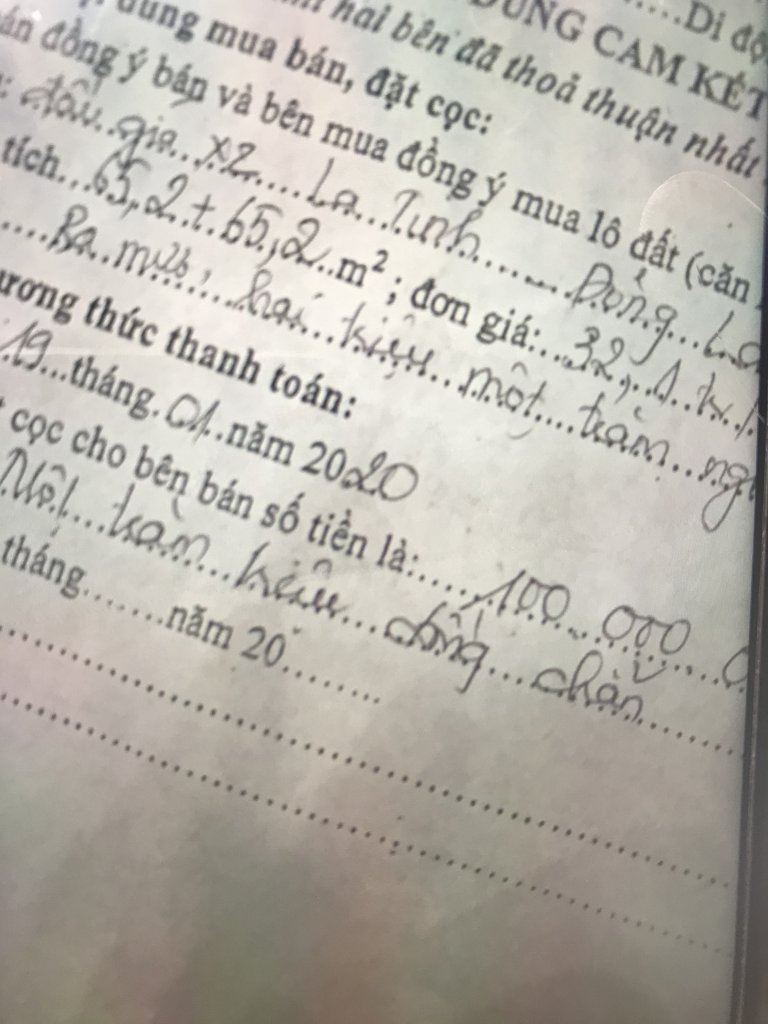 .....Di độ
DUNG CAM KẾT
hai bên đã thoả thuận nhất
dung mua bán, đặt cọc:
án đồng ý bán và bên mua đồng ý mua lô đất (căn
: đấu giá X2 La Tinh Đông La
tích...65,2 + 65,2 m²; đơn giá:...32,1 tr/
Ba mươi hai triệu một trăm
ương thức thanh toán:
19...tháng.01..năm 2020
cọc cho bên bán số tiền là:......100 000 0
Một trăm triệu đồng chẵn
tháng.......năm 20........